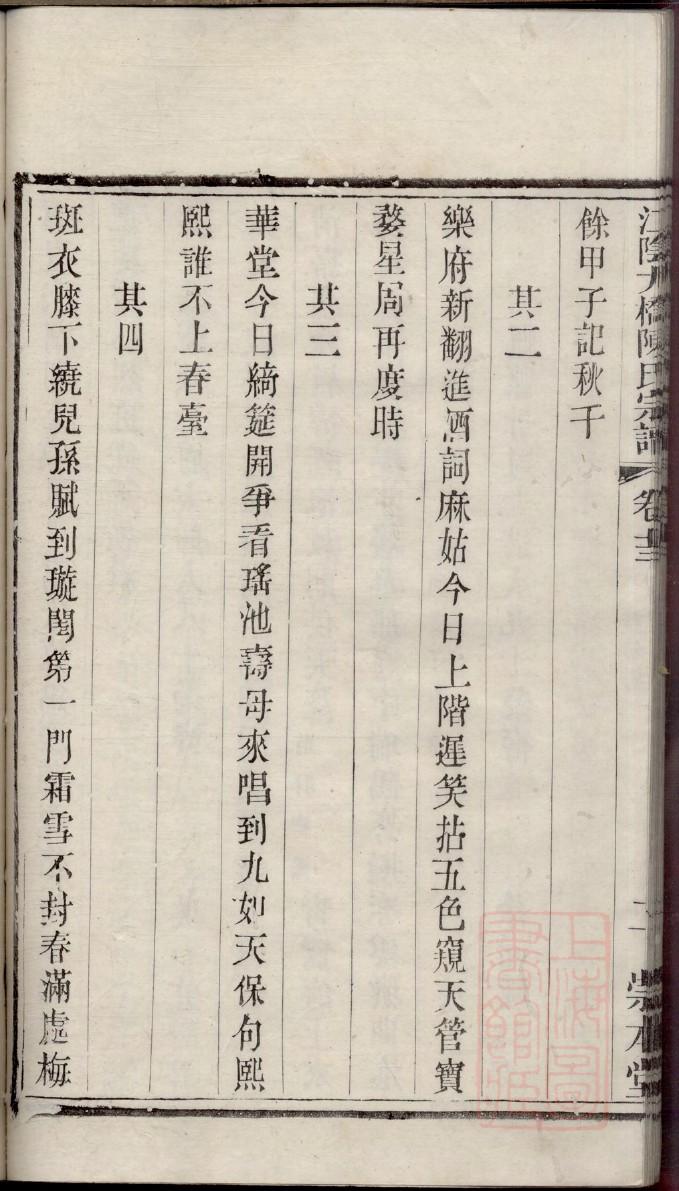 江陰九橋陳氏宗譜 卷
崇本堂
餘甲子記秋千
其二
樂府新翻進酒詞麻姑今日上階遲笑拈五色窺天管寶
婺星周再度時
其三
華堂今日綺筵開爭看瑤池壽母來唱到九如天保句熙
熙誰不上春臺
其四
斑衣膝下繞兒孫賦到璇閨第一門霜雪不封春滿處梅
上海圖書館藏